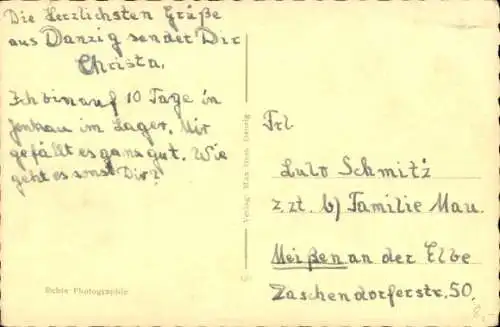 Die Herzlichsten Grüße
aus Danzig sendet Dir
Christa.
Ich bin auf 10 Tage in
Jenkau im Lager. Mir
gefällt es ganz gut. Wie
geht es sonst Dir?
Echte Photographie
Verlag: Max Danzig
Frl
Schmitz
z.zt. b/ Familie Mau.
Meißen an der Elbe
Zaschendorferstr. 50.